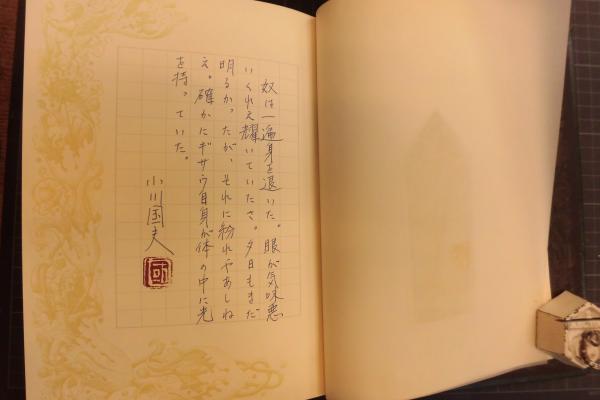 奴は一遍身を退いた。眼が気味悪
いくれえ耀いていたさ。夕日もまだ
明るかったが、それに紛れやあしね
え。確かにギサウ自身が体の中に光
を持っていた。
小川国夫
国